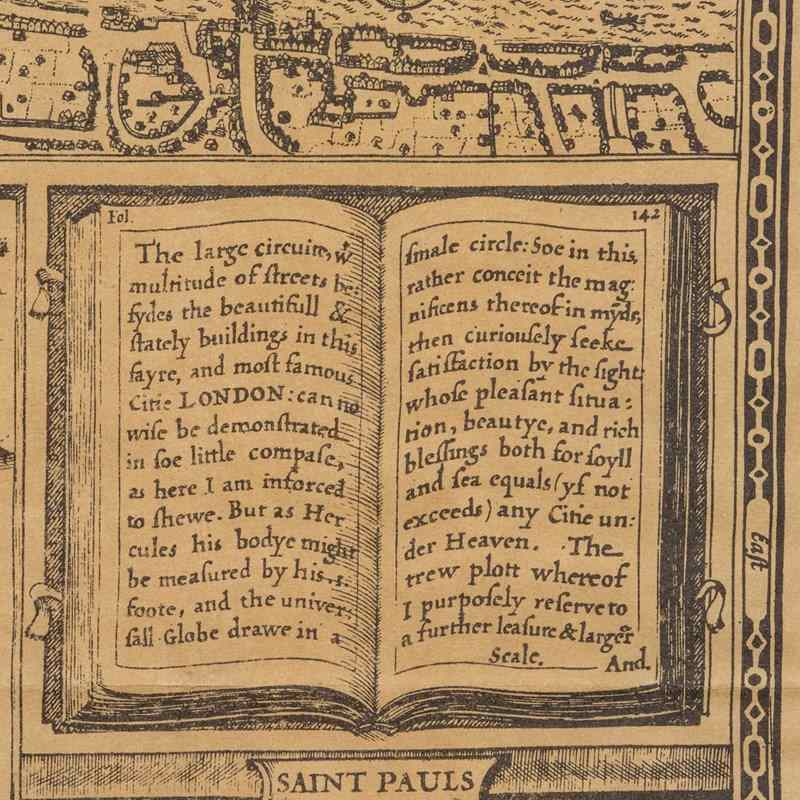 Fol.
The large circuite, wͭ
multitude of ſtreets be:
ſydes the beautifull &
ſtately buildings in this
fayre, and moſt famous
Citie LONDON: can no
wiſe be demonſtrated
in ſoe little compaſe,
as here I am inforced
to ſhewe. But as Her
cules his bodye might
be meaſured by his
foote, and the univer:
ſall Globe drawe in a
142
ſmale circle: Soe in this,
rather conceit the mag:
nificens thereof in myde,
then curiouſely ſeeke
ſatiſfaction by the ſight:
whoſe pleaſant ſitua:
tion, beautye, and rich
bleſſings both for ſoyll
and ſea equals (yf not
exceeds) any Citie un:
der Heaven. The
trew plott whereof
I purpoſely reſerve to
a further leaſure & larger
Scale. And.
Eaſt
SAINT PAULS